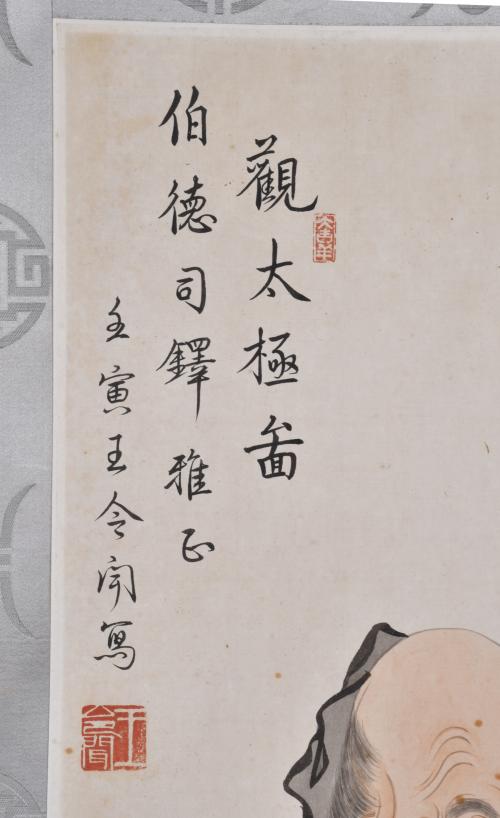 觀太極啚
伯德司鐸雅正
壬寅王令聞寫